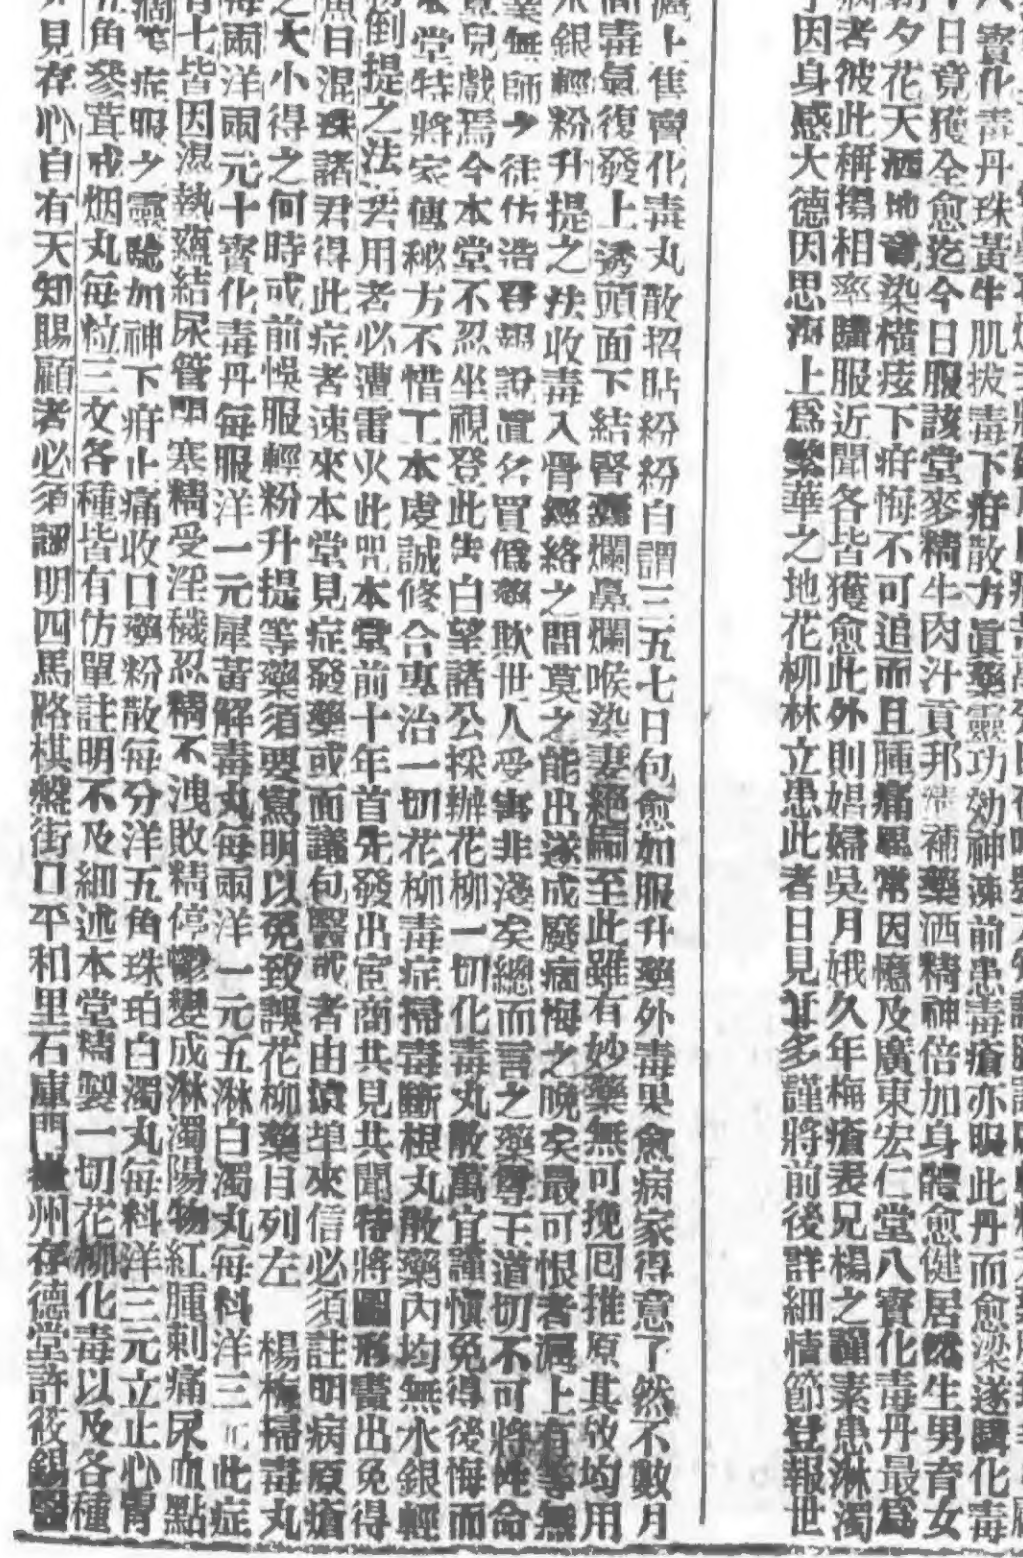 八寶化毒丹珠黃牛肌拔毒下疳散方眞藥靈功効神速前患毒瘡亦眼此丹而愈梁遂購化毒
日竟獲全愈迄今日服該堂麥精牛肉汁貢邦 補藥洒精神倍加身體愈健居然生男育女
夕花天洒地 染橫痃下疳悔不可追而且腫痛異常因憶及廣東宏仁堂八寶化毒丹最爲
病者彼此稱揚相率購服近聞各皆獲愈此外則娼婦吳月娥久年梅瘡表兄楊之謹素患淋濁
因身感大德因思海上爲繁華之地花柳林立患此者日見其多謹將前後詳細情節登報世
上售賣化毒丸散招貼紛紛自謂三五七日包愈如服升藥外毒果愈病家得意了然不數月
毒氣復發上誘頭面下結腎 爛鼻爛喉染妻絕嗣至此雖有妙藥無可挽回推原其故均用
水銀輕粉升提之法收毒入骨經絡之間莫之能出遂成廢病悔之晚矣最可恨者滬上有等無
業無師之徒仿 招說置名買僞藥欺世人受害非淺矣總而言之藥等干道切不可將性命
兒戲焉今本堂不忍坐視登此告白望諸公採辦花柳一切化毒丸散萬宜謹愼免得後悔而
本堂特將家傳秘方不惜工本虔誠修合專治一切花柳毒症掃毒斷根丸散藥內均無水銀輕
倒提之法若用者必遭雷火此咒本堂前十年首先發出宦商共見共聞特將圖形畫出免得
魚目混珠諸君得此症者速來本堂見症發藥或面議包醫或者由 埠來信必須註明病原瘡
之大小得之何時或前悞服輕粉升提等藥須要寫明以免致誤花柳藥目列左 楊梅掃毒丸
每兩洋兩元十寶化毒丹每服洋一元犀黃解毒丸每兩洋一元五淋白濁丸每料洋三元此症
七皆因濕執蘊結尿管 寒精受淫穢忍精不洩敗精停鬱變成淋濁陽物紅腫刺痛尿血點
滴等症服之靈驗如神下疳止痛收口藥粉散每分洋五角珠珀白濁丸每料洋三元立止心胃
五角參茸戒烟丸每粒三文各種皆有仿單註明不及細述本堂精製一切花柳化毒以及各種
見存心自有天知賜顧者必須認明四馬路棋盤街口平和里石庫門 州存德堂許筱錫醫